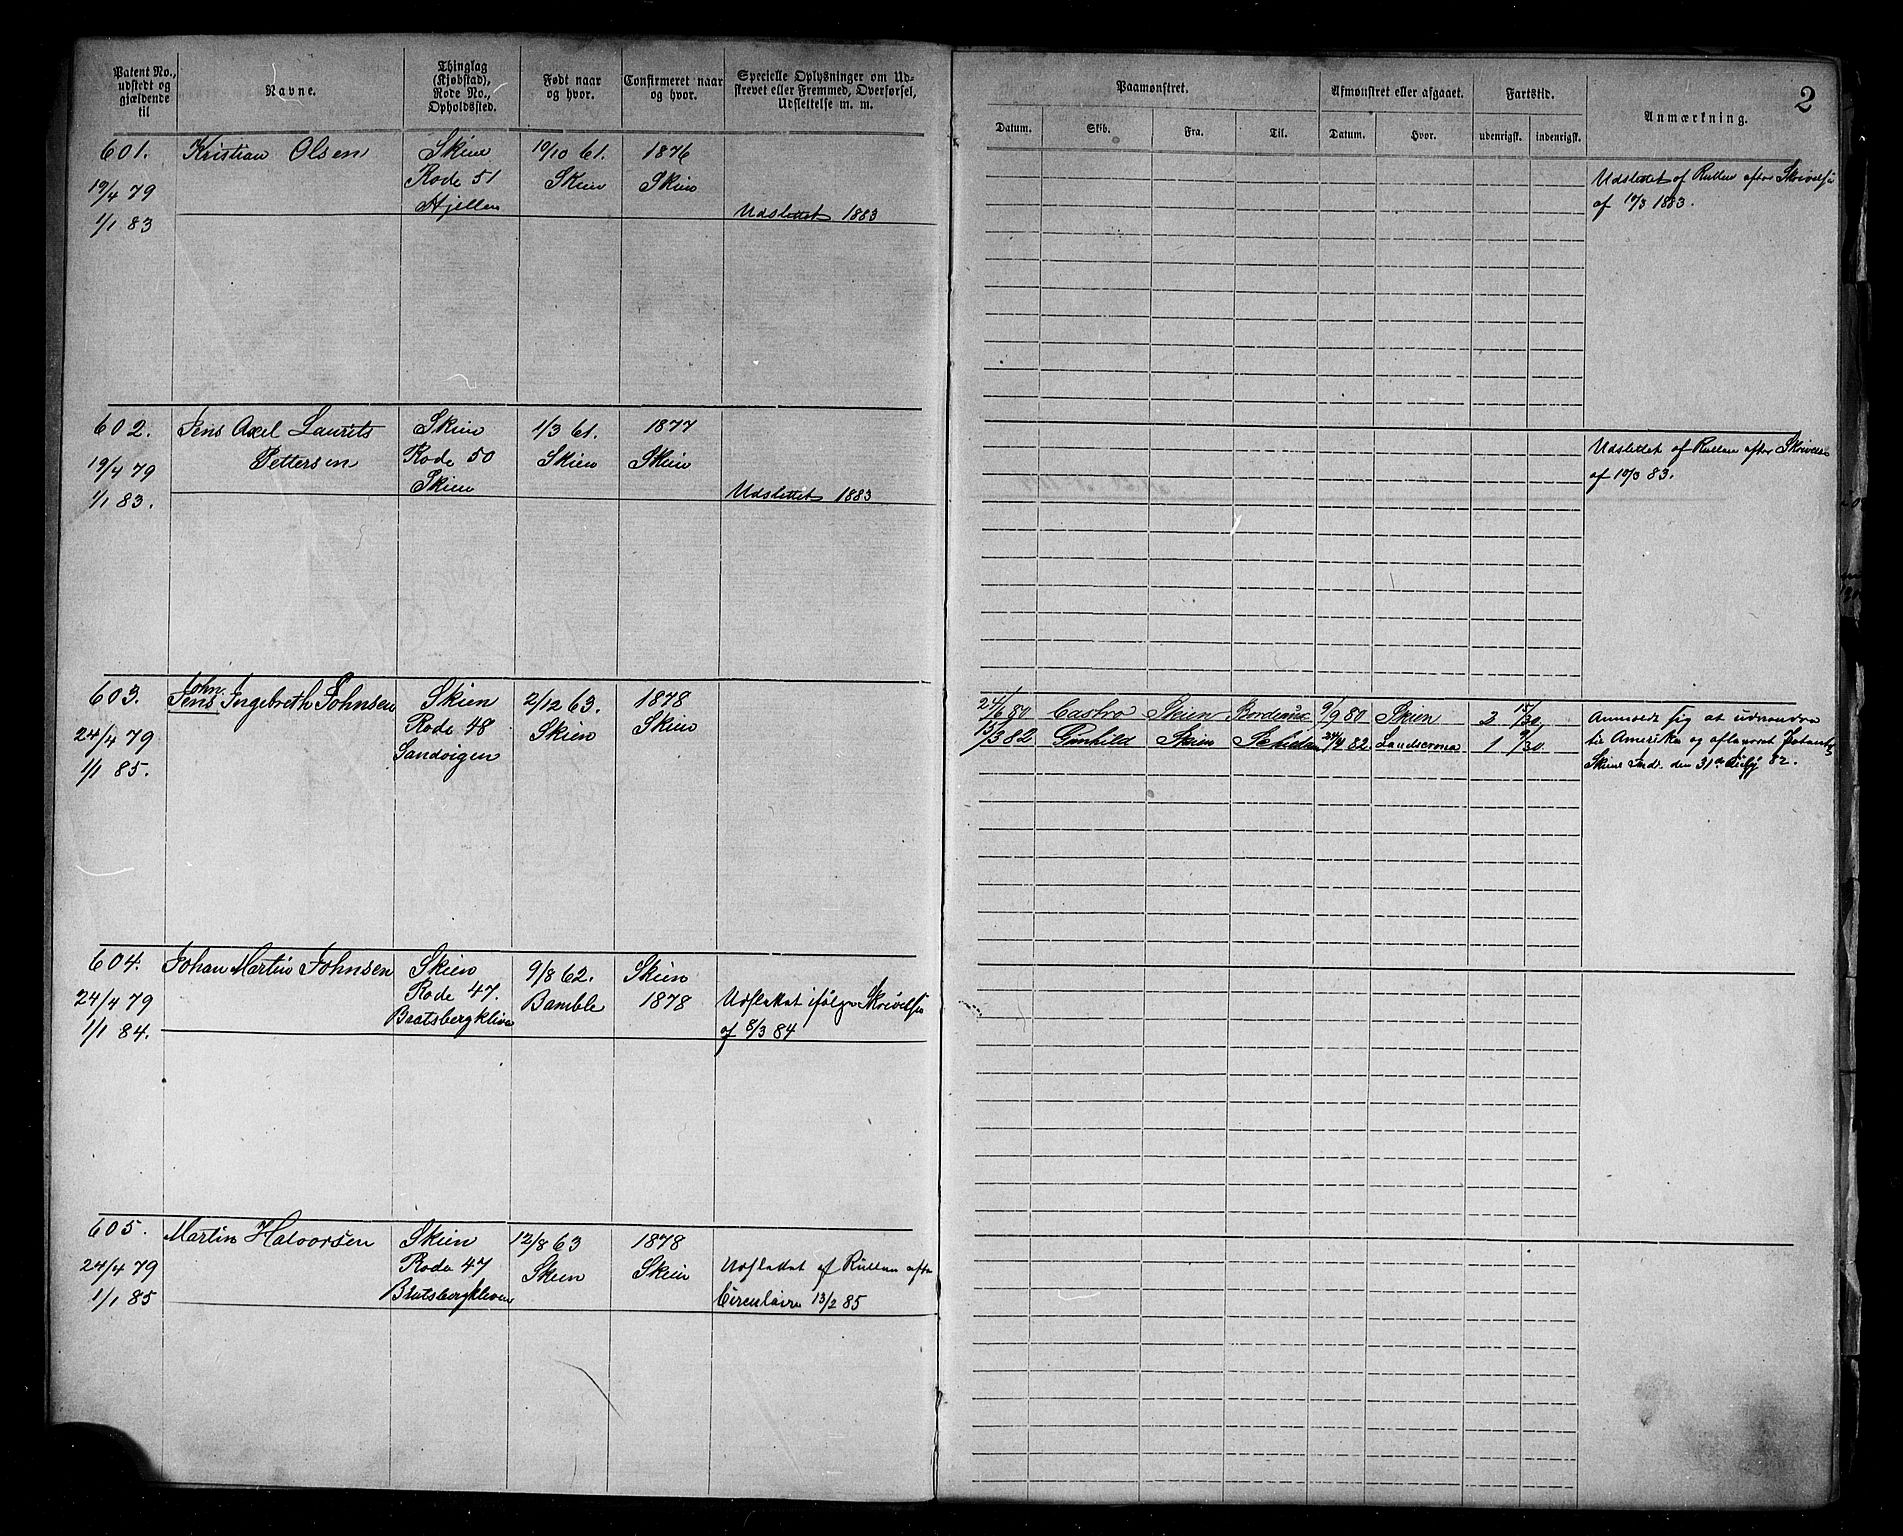 2
Patent No., udstedt og gjældende til
Navne.
Thinglag (Kjøbstad), Rode No., Opholdssted.
Født naar og hvor.
Confirmeret naar og hvor.
Specielle Oplysninger om Udskrevet eller Fremmed, Overførsel, Udslettelse m. m.
Paamønstret.
Afmønstret eller afgaaet.
Fartstid.
Anmærkning.
Datum. Skib. Fra. Til. Datum. Hvor. udenrigsk. indenrigsk.
601. Kristian Olsen Skien 19/10 61. 1876
Rode 51 Skien Skien
19/4 79 Hjellen
1/1 83 Udslettet 1883
Udslettet af Rullen efter Skrivelse
af 10/3 1883.
602. Jens Axel Laurits Skien 1/3 61. 1877
19/4 79 Pettersen Rode 50 Skien Skien
Skien
1/1 83. Udslettet 1883
Udslettet af Rullen efter Skrivelse
af 10/3 83.
John
603. Jens Ingebreth Johnsen Skien 2/12 63. 1878
24/4 79 Rode 48 Skien Skien
1/1 85. Sandvigen
24/6 80 Castro Skien Bordeaux 9/9 80 Skien 2 15/30
15/3 82 Gunhild Skien 24/4 82. 1 9/30
Anmeldt sig at udvandre
til Amerika og afleveret Patentet
Skiens den 31te July 82.
604. Johan Martin Johnsen Skien 9/8 62. Skien
24/4 79 Rode 47. Bamble 1878 Udslettet ifølge Skrivelse
1/1 84. Bratsbergkliven af 8/3 84
605. Martin Halvorsen Skien 12/8 63 1878
24/4 79 Rode 47 Skien Skien Udslettet af Rullen efter
1/1 85 Bratsbergkliven Circulaire 13/2 85